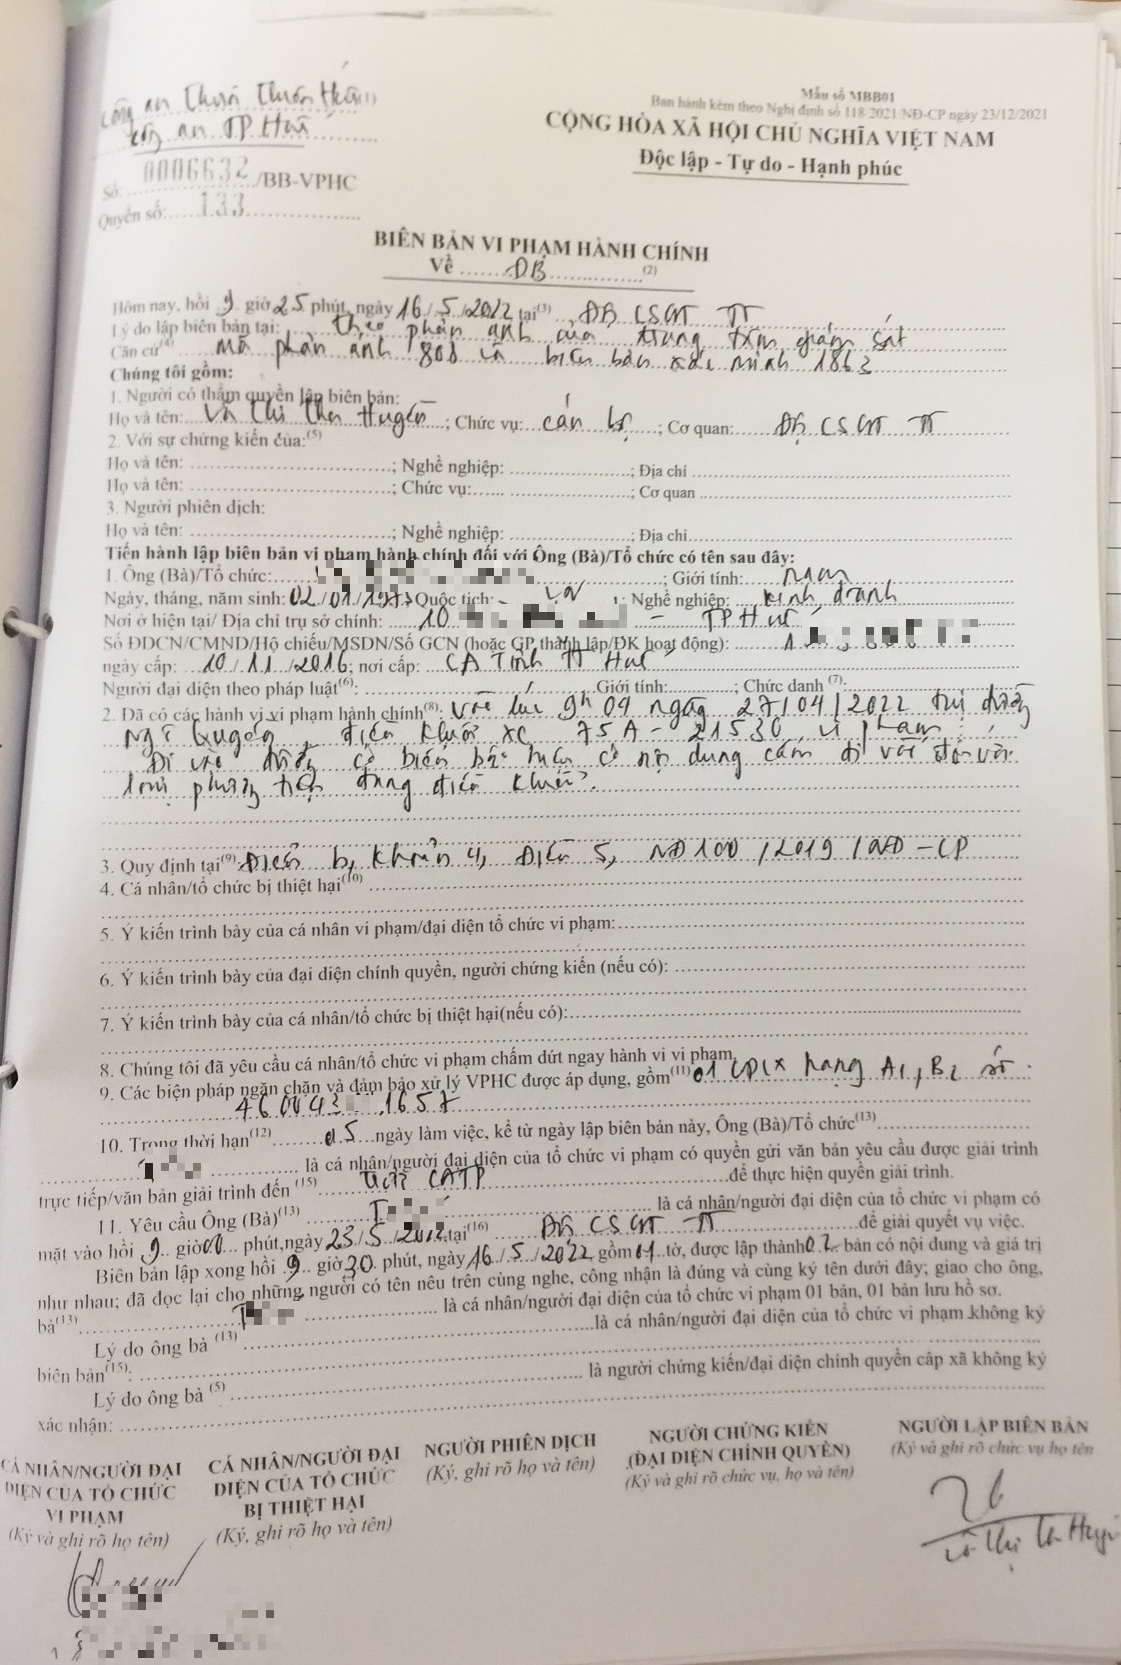 Công an Thừa Thiên Huế (1)
Công an TP. Huế
Mẫu số MBB01
Ban hành kèm theo Nghị định số 118/2021/NĐ-CP ngày 23/12/2021
CỘNG HÒA XÃ HỘI CHỦ NGHĨA VIỆT NAM
Độc lập - Tự do - Hạnh phúc
Số: 0006632 /BB-VPHC
Quyển số: 133
BIÊN BẢN VI PHẠM HÀNH CHÍNH
Về ĐB (2)
Hôm nay, hồi 9 giờ 25 phút, ngày 16/5/2022 tại(3) Đội CSGT TT
Lý do lập biên bản tại: theo phản ánh của trung tâm giám sát
Căn cứ(4) mã phản ánh 808 và biên bản xác minh 1863
Chúng tôi gồm:
1. Người có thẩm quyền lập biên bản:
Họ và tên: Võ Thị Thu Huyền; Chức vụ: cán bộ; Cơ quan: Đội CSGT TT
2. Với sự chứng kiến của:(5)
Họ và tên: ; Nghề nghiệp: ; Địa chỉ
Họ và tên: ; Chức vụ: ; Cơ quan
3. Người phiên dịch:
Họ và tên: ; Nghề nghiệp: ; Địa chỉ
Tiến hành lập biên bản vi phạm hành chính đối với Ông (Bà)/Tổ chức có tên sau đây:
1. Ông (Bà)/Tổ chức: ; Giới tính: nam
Ngày, tháng, năm sinh: 02/01/ Quốc tịch: VN; Nghề nghiệp: kinh doanh
Nơi ở hiện tại/ Địa chỉ trụ sở chính: 10 - TP Huế
Số ĐDCN/CMND/Hộ chiếu/MSDN/Số GCN (hoặc GP thành lập/ĐK hoạt động): 1
ngày cấp: 10/11/2016; nơi cấp: CA Tỉnh TT Huế
Người đại diện theo pháp luật(6): Giới tính: ; Chức danh (7):
2. Đã có các hành vi vi phạm hành chính(8): Vào lúc 9h04 ngày 27/04/2022 tại đường
Ngô Quyền, điều khiển xe 75A-21530 vi phạm:
Đi vào đường có biển báo hiệu có nội dung cấm đi vào đối với
loại phương tiện đang điều khiển.
3. Quy định tại(9): Điểm b, khoản 4, Điều 5, NĐ100/2019/NĐ-CP
4. Cá nhân/tổ chức bị thiệt hại(10)
5. Ý kiến trình bày của cá nhân vi phạm/đại diện tổ chức vi phạm:
6. Ý kiến trình bày của đại diện chính quyền, người chứng kiến (nếu có):
7. Ý kiến trình bày của cá nhân/tổ chức bị thiệt hại(nếu có):
8. Chúng tôi đã yêu cầu cá nhân/tổ chức vi phạm chấm dứt ngay hành vi vi phạm.
9. Các biện pháp ngăn chặn và đảm bảo xử lý VPHC được áp dụng, gồm(11) 01 GPLX hạng A1, B2 số
460043 1657
10. Trong thời hạn(12) 05 ngày làm việc, kể từ ngày lập biên bản này, Ông (Bà)/Tổ chức(13)
là cá nhân/người đại diện của tổ chức vi phạm có quyền gửi văn bản yêu cầu được giải trình
trực tiếp/văn bản giải trình đến (15) CATP để thực hiện quyền giải trình.
11. Yêu cầu Ông (Bà)(13) là cá nhân/người đại diện của tổ chức vi phạm có
mặt vào hồi 9 giờ 00 phút, ngày 23/5/2022 tại(16) Đội CSGT TT để giải quyết vụ việc.
Biên bản lập xong hồi 9 giờ 30 phút, ngày 16/5/2022, gồm 01 tờ, được lập thành 02 bản có nội dung và giá trị
như nhau; đã đọc lại cho những người có tên nêu trên cùng nghe, công nhận là đúng và cùng ký tên dưới đây; giao cho ông,
bà(13) là cá nhân/người đại diện của tổ chức vi phạm 01 bản, 01 bản lưu hồ sơ.
Lý do ông bà (13) là cá nhân/người đại diện của tổ chức vi phạm không ký
biên bản(15):
Lý do ông bà (5) là người chứng kiến/đại diện chính quyền cấp xã không ký
xác nhận:
CÁ NHÂN/NGƯỜI ĐẠI
DIỆN CỦA TỔ CHỨC
VI PHẠM
(Ký và ghi rõ họ tên)
CÁ NHÂN/NGƯỜI ĐẠI
DIỆN CỦA TỔ CHỨC
BỊ THIỆT HẠI
(Ký, ghi rõ họ và tên)
NGƯỜI PHIÊN DỊCH
(Ký, ghi rõ họ và tên)
NGƯỜI CHỨNG KIẾN
(ĐẠI DIỆN CHÍNH QUYỀN)
(Ký và ghi rõ chức vụ, họ và tên)
NGƯỜI LẬP BIÊN BẢN
(Ký và ghi rõ chức vụ họ tên
Võ Thị Th Huyền